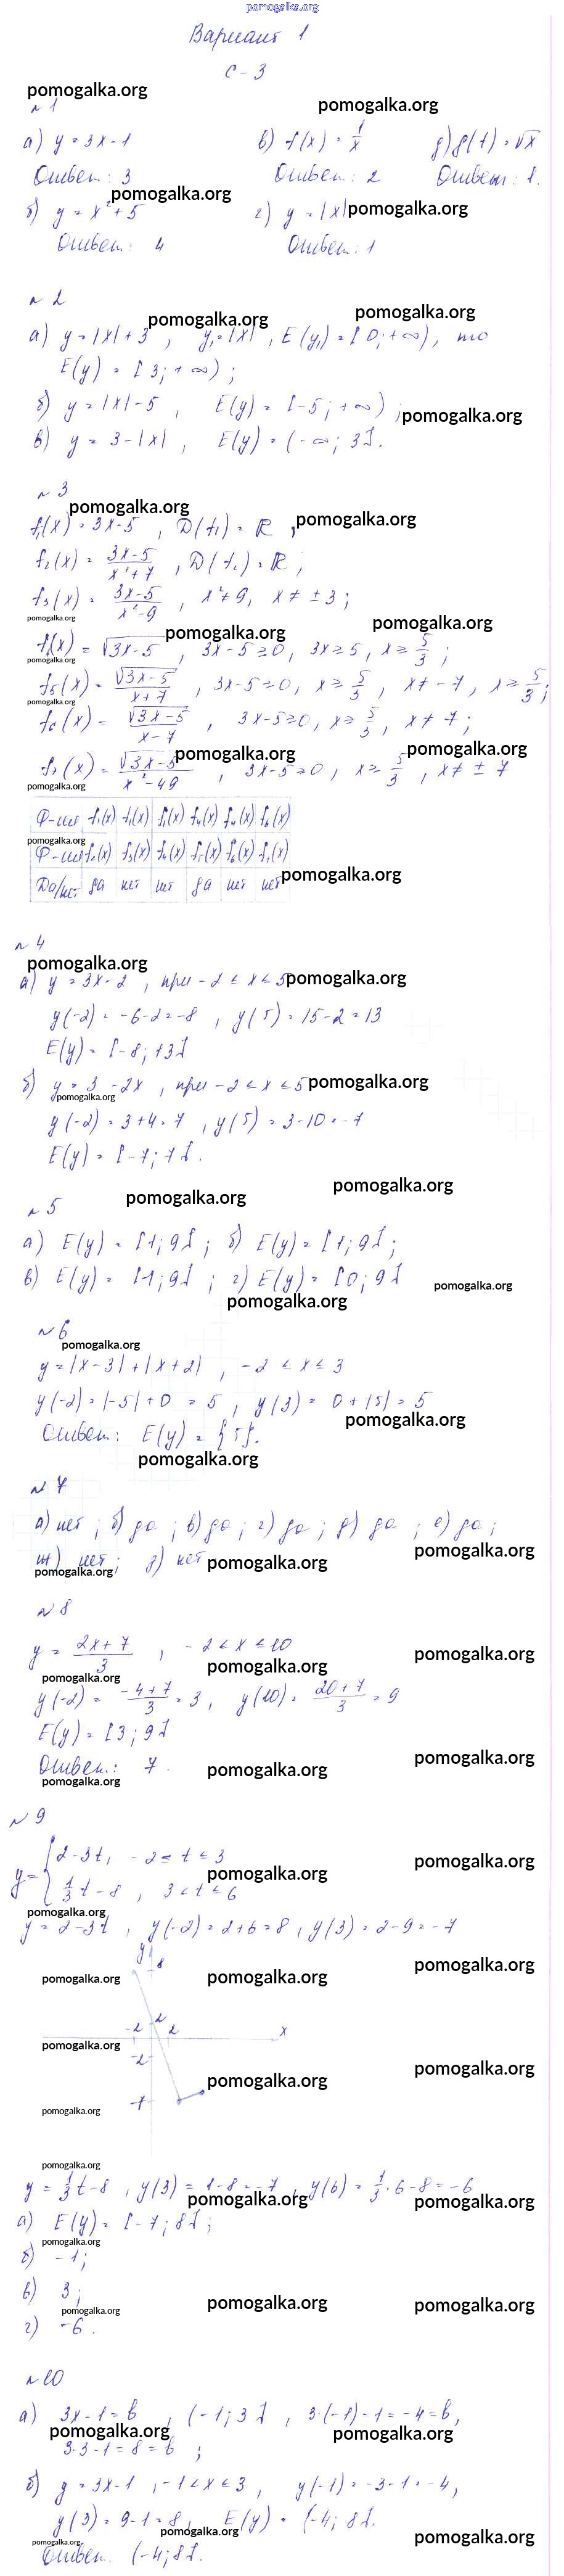 pomogalka.org
Вариант 1
С-3
pomogalka.org
№1 pomogalka.org
а) y = 3x-1 в) f(x) = 1/x д) g(t) = √x
Ответ: 3 Ответ: 2 Ответ: 1.
pomogalka.org
б) y = x²+5 г) y = |x| pomogalka.org
Ответ: 4 Ответ: 1
№2
pomogalka.org pomogalka.org
а) y = |x|+3, y₁ = |x|, E(y₁) = [0; +∞), то
E(y) = [3; +∞);
б) y = |x|-5, E(y) = [-5; +∞); pomogalka.org
в) y = 3-|x|, E(y) = (-∞; 3].
№3
pomogalka.org
f₁(x) = 3x-5, D(f₁) = R, pomogalka.org
f₂(x) = (3x-5)/(x²+7), D(f₂) = R;
f₃(x) = (3x-5)/(x²-9), x² ≠ 9, x ≠ ±3;
pomogalka.org pomogalka.org pomogalka.org
f₄(x) = √(3x-5), 3x-5 ≥ 0, 3x ≥ 5, x ≥ 5/3;
pomogalka.org
f₅(x) = √(3x-5)/(x+7), 3x-5 ≥ 0, x ≥ 5/3, x ≠ -7, x ≥ 5/3;
pomogalka.org
f₆(x) = √(3x-5)/(x-7), 3x-5 ≥ 0, x ≥ 5/3, x ≠ 7;
pomogalka.org pomogalka.org
f₇(x) = √(3x-5)/(x²-49), 3x-5 ≥ 0, x ≥ 5/3, x ≠ ±7
pomogalka.org
Ф-ция f₁(x) f₁(x) f₁(x) f₄(x) f₄(x) f₆(x)
pomogalka.org
Ф-ция f₂(x) f₃(x) f₄(x) f₅(x) f₆(x) f₇(x)
Да/нет да нет нет да нет нет pomogalka.org
№4
pomogalka.org
а) y = 3x-2, при -2 ≤ x ≤ 5 pomogalka.org
y(-2) = -6-2 = -8, y(5) = 15-2 = 13
E(y) = [-8; 13]
б) y = 3-2x, при -2 ≤ x ≤ 5 pomogalka.org
pomogalka.org
y(-2) = 3+4 = 7, y(5) = 3-10 = -7
E(y) = [-7; 7].
№5 pomogalka.org pomogalka.org
а) E(y) = [1; 9]; б) E(y) = [1; 9];
в) E(y) = [1; 9]; г) E(y) = [0; 9] pomogalka.org
pomogalka.org
№6
pomogalka.org
y = |x-3|+|x+2|, -2 ≤ x ≤ 3
y(-2) = |-5|+0 = 5, y(3) = 0+|5| = 5
pomogalka.org
Ответ: E(y) = {5}.
pomogalka.org
№7
а) нет; б) да; в) да; г) да; д) да; е) да;
ж) нет; з) нет pomogalka.org pomogalka.org
pomogalka.org
№8
y = (2x+7)/3, -2 ≤ x ≤ 10 pomogalka.org
pomogalka.org pomogalka.org
y(-2) = (-4+7)/3 = 3, y(10) = (20+7)/3 = 9
E(y) = [3; 9]
Ответ: 7. pomogalka.org pomogalka.org
pomogalka.org
№9
y = {2-3t, -2 ≤ t ≤ 3 pomogalka.org
1/3 t-8, 3 < t ≤ 6 pomogalka.org
pomogalka.org
y = 2-3t, y(-2) = 2+6 = 8, y(3) = 2-9 = -7
y 8 pomogalka.org
pomogalka.org pomogalka.org
-2 2 2 x
pomogalka.org
-2 pomogalka.org
-7 pomogalka.org
pomogalka.org
pomogalka.org
y = 1/3 t-8, y(3) = 1-8 = -7, y(6) = 1/3·6-8 = -6
pomogalka.org pomogalka.org
а) E(y) = [-7; 8];
pomogalka.org
б) -1;
в) 3; pomogalka.org pomogalka.org
pomogalka.org
г) -6.
№10
а) 3x-1 = b, (-1; 3], 3·(-1)-1 = -4 = b,
pomogalka.org pomogalka.org
3·3-1 = 8 = b;
б) y = 3x-1, -1 < x ≤ 3, y(-1) = -3-1 = -4,
y(3) = 9-1 = 8, E(y) = (-4; 8].
pomogalka.org pomogalka.org
pomogalka.org
Ответ. (-4; 8].